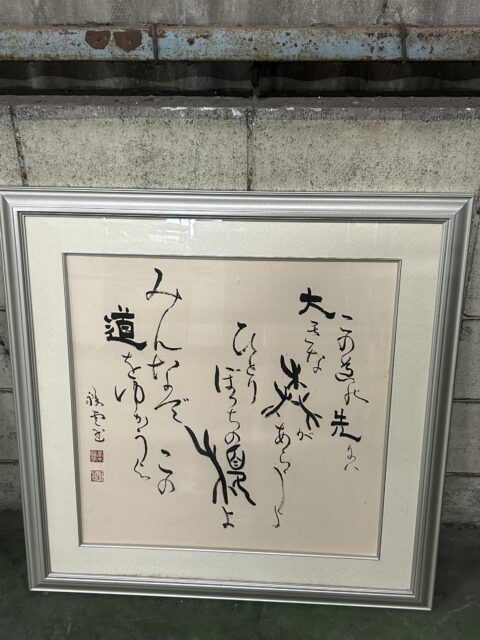 この道の先には
大きな
森があらうよ
ひとり
ぼっちの榎よ
みんなで この
道をゆかうよ